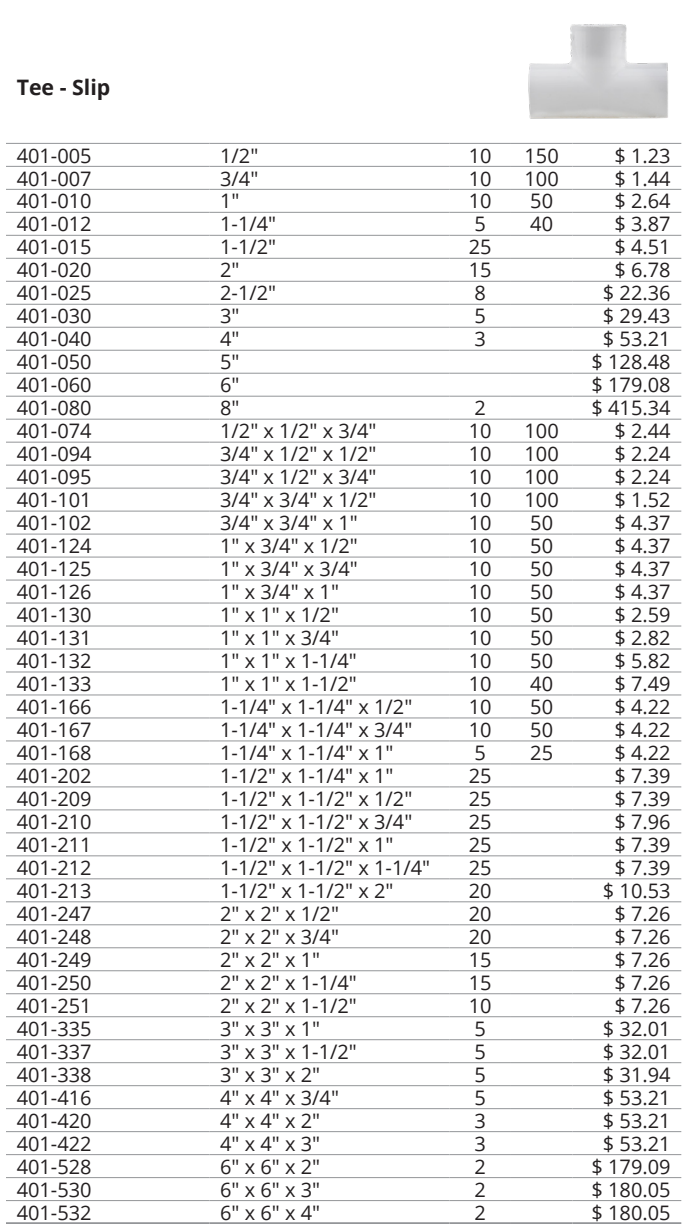 Tee - Slip
401-005 1/2" 10 150 $ 1.23
401-007 3/4" 10 100 $ 1.44
401-010 1" 10 50 $ 2.64
401-012 1-1/4" 5 40 $ 3.87
401-015 1-1/2" 25 $ 4.51
401-020 2" 15 $ 6.78
401-025 2-1/2" 8 $ 22.36
401-030 3" 5 $ 29.43
401-040 4" 3 $ 53.21
401-050 5" $ 128.48
401-060 6" $ 179.08
401-080 8" 2 $ 415.34
401-074 1/2" x 1/2" x 3/4" 10 100 $ 2.44
401-094 3/4" x 1/2" x 1/2" 10 100 $ 2.24
401-095 3/4" x 1/2" x 3/4" 10 100 $ 2.24
401-101 3/4" x 3/4" x 1/2" 10 100 $ 1.52
401-102 3/4" x 3/4" x 1" 10 50 $ 4.37
401-124 1" x 3/4" x 1/2" 10 50 $ 4.37
401-125 1" x 3/4" x 3/4" 10 50 $ 4.37
401-126 1" x 3/4" x 1" 10 50 $ 4.37
401-130 1" x 1" x 1/2" 10 50 $ 2.59
401-131 1" x 1" x 3/4" 10 50 $ 2.82
401-132 1" x 1" x 1-1/4" 10 50 $ 5.82
401-133 1" x 1" x 1-1/2" 10 40 $ 7.49
401-166 1-1/4" x 1-1/4" x 1/2" 10 50 $ 4.22
401-167 1-1/4" x 1-1/4" x 3/4" 10 50 $ 4.22
401-168 1-1/4" x 1-1/4" x 1" 5 25 $ 4.22
401-202 1-1/2" x 1-1/4" x 1" 25 $ 7.39
401-209 1-1/2" x 1-1/2" x 1/2" 25 $ 7.39
401-210 1-1/2" x 1-1/2" x 3/4" 25 $ 7.96
401-211 1-1/2" x 1-1/2" x 1" 25 $ 7.39
401-212 1-1/2" x 1-1/2" x 1-1/4" 25 $ 7.39
401-213 1-1/2" x 1-1/2" x 2" 20 $ 10.53
401-247 2" x 2" x 1/2" 20 $ 7.26
401-248 2" x 2" x 3/4" 20 $ 7.26
401-249 2" x 2" x 1" 15 $ 7.26
401-250 2" x 2" x 1-1/4" 15 $ 7.26
401-251 2" x 2" x 1-1/2" 10 $ 7.26
401-335 3" x 3" x 1" 5 $ 32.01
401-337 3" x 3" x 1-1/2" 5 $ 32.01
401-338 3" x 3" x 2" 5 $ 31.94
401-416 4" x 4" x 3/4" 5 $ 53.21
401-420 4" x 4" x 2" 3 $ 53.21
401-422 4" x 4" x 3" 3 $ 53.21
401-528 6" x 6" x 2" 2 $ 179.09
401-530 6" x 6" x 3" 2 $ 180.05
401-532 6" x 6" x 4" 2 $ 180.05